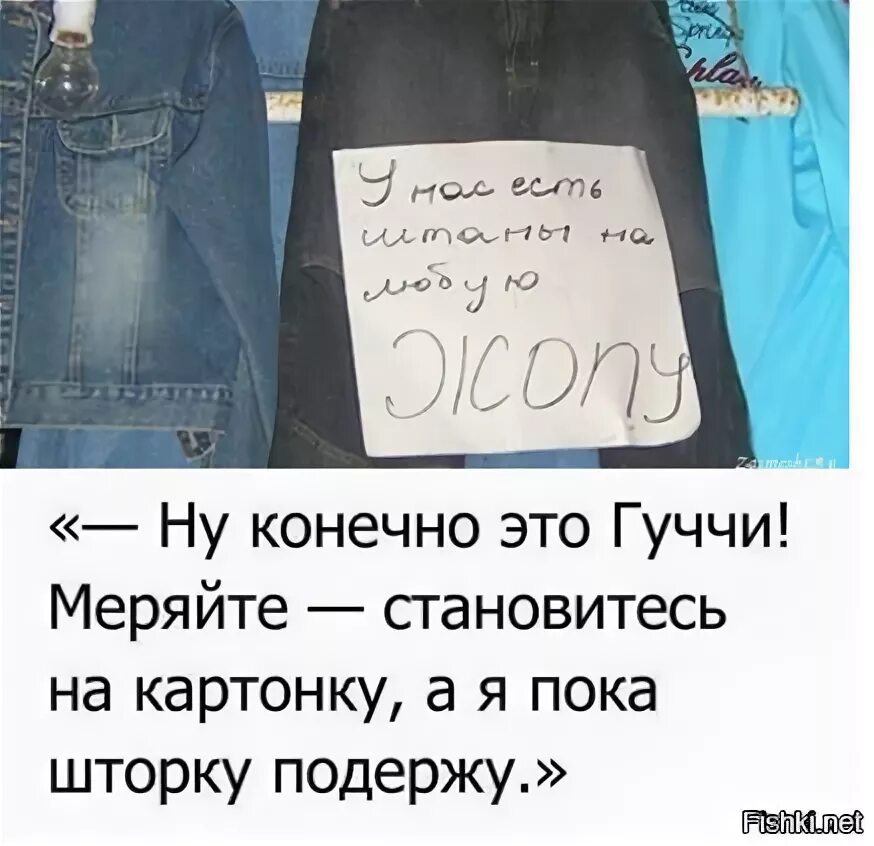 Spring
У нас есть
штаны на
любую
ЖОПУ
«— Ну конечно это Гуччи!
Меряйте — становитесь
на картонку, а я пока
шторку подержу.»
Fishki.net